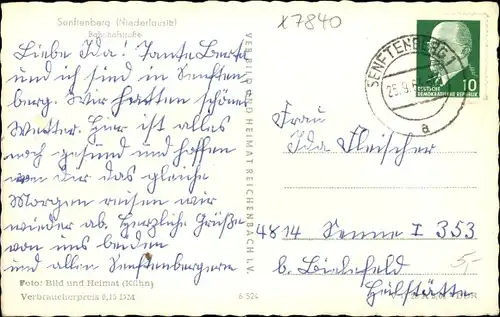 Senftenberg (Niederlausitz)
Bahnhofstraße
x7840
Liebe Ida! Tante Berta
und ich sind in Senften
berg. Wir hatten schönes
Wetter. Hier ist alles
noch gesund und hoffen
von dir das gleiche
Morgen reisen wir
wieder ab. Herzliche Grüße
von uns beiden
und allen Senftenbergern
Foto: Bild und Heimat (Kühn)
Verbraucherpreis 0,15 DM
6 524
VEB BILD UND HEIMAT REICHENBACH I. V.
SENFTENBERG 1
a
DEUTSCHE
DEMOKRATISCHE REPUBLIK
10
Frau
Ida Fleischer
4814 Senne I 353
b. Bielefeld
Heilstätte
5,-